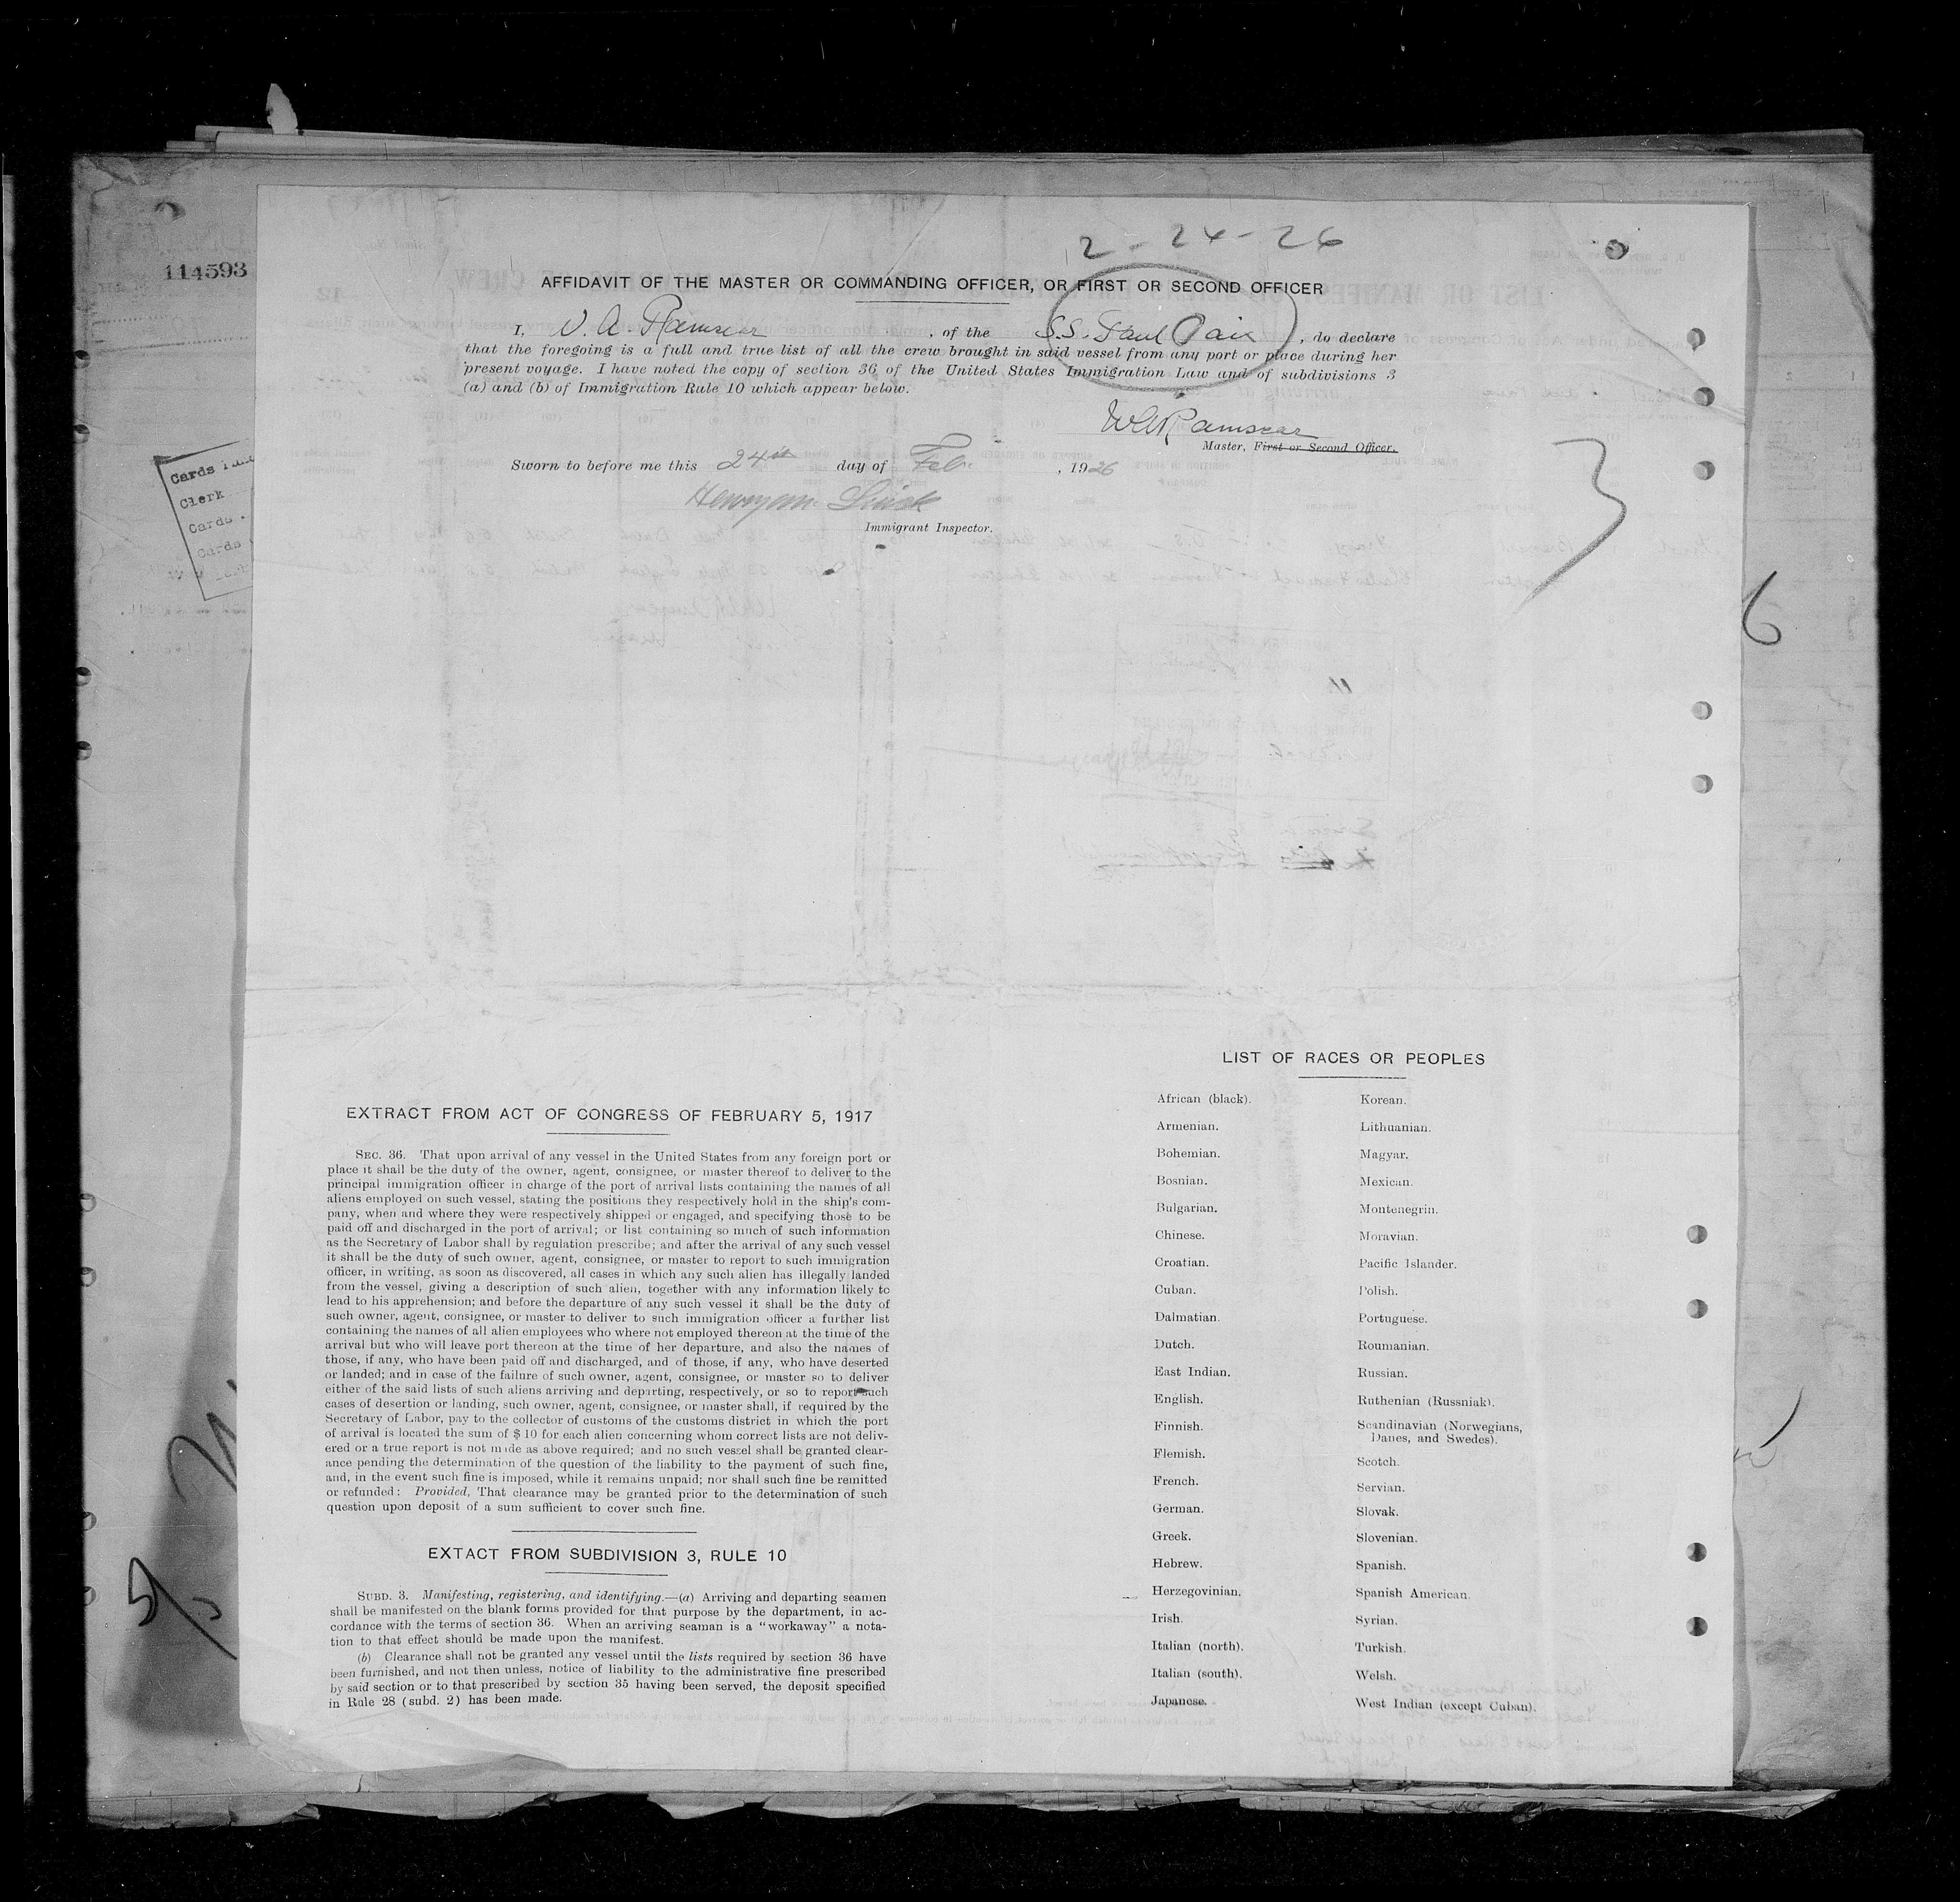 114593
2-24-26
AFFIDAVIT OF THE MASTER OR COMMANDING OFFICER, OR FIRST OR SECOND OFFICER
I, , of the S.S. Paul , do declare
that the foregoing is a full and true list of all the crew brought in said vessel from any port or place during her
present voyage. I have noted the copy of section 36 of the United States Immigration Law and of subdivisions 3
(a) and (b) of Immigration Rule 10 which appear below.
Master, First or Second Officer.
3
Sworn to before me this 24th day of Feb. , 1926
Immigrant Inspector.
Cards
Clerk
Cards
Cards
6
LIST OF RACES OR PEOPLES
African (black).
Armenian.
Bohemian.
Bosnian.
Bulgarian.
Chinese.
Croatian.
Cuban.
Dalmatian.
Dutch.
East Indian.
English.
Finnish.
Flemish.
French.
German.
Greek.
Hebrew.
Herzegovinian.
Irish.
Italian (north).
Italian (south).
Japanese.
Korean.
Lithuanian.
Magyar.
Mexican.
Montenegrin.
Moravian.
Pacific Islander.
Polish.
Portuguese.
Roumanian.
Russian.
Ruthenian (Russniak).
Scandinavian (Norwegians,
Danes, and Swedes).
Scotch.
Servian.
Slovak.
Slovenian.
Spanish.
Spanish American.
Syrian.
Turkish.
Welsh.
West Indian (except Cuban).
EXTRACT FROM ACT OF CONGRESS OF FEBRUARY 5, 1917
SEC. 36. That upon arrival of any vessel in the United States from any foreign port or
place it shall be the duty of the owner, agent, consignee, or master thereof to deliver to the
principal immigration officer in charge of the port of arrival lists containing the names of all
aliens employed on such vessel, stating the positions they respectively hold in the ship's com-
pany, when and where they were respectively shipped or engaged, and specifying those to be
paid off and discharged in the port of arrival; or list containing so much of such information
as the Secretary of Labor shall by regulation prescribe; and after the arrival of any such vessel
it shall be the duty of such owner, agent, consignee, or master to report to such immigration
officer, in writing, as soon as discovered, all cases in which any such alien has illegally landed
from the vessel, giving a description of such alien, together with any information likely to
lead to his apprehension; and before the departure of any such vessel it shall be the duty of
such owner, agent, consignee, or master to deliver to such immigration officer a further list
containing the names of all alien employees who where not employed thereon at the time of the
arrival but who will leave port thereon at the time of her departure, and also the names of
those, if any, who have been paid off and discharged, and of those, if any, who have deserted
or landed; and in case of the failure of such owner, agent, consignee, or master so to deliver
either of the said lists of such aliens arriving and departing, respectively, or so to report such
cases of desertion or landing, such owner, agent, consignee, or master shall, if required by the
Secretary of Labor, pay to the collector of customs of the customs district in which the port
of arrival is located the sum of $10 for each alien concerning whom correct lists are not deliv-
ered or a true report is not made as above required; and no such vessel shall be granted clear-
ance pending the determination of the question of the liability to the payment of such fine,
and, in the event such fine is imposed, while it remains unpaid; nor shall such fine be remitted
or refunded: Provided, That clearance may be granted prior to the determination of such
question upon deposit of a sum sufficient to cover such fine.
EXTACT FROM SUBDIVISION 3, RULE 10
SUBD. 3. Manifesting, registering, and identifying.—(a) Arriving and departing seamen
shall be manifested on the blank forms provided for that purpose by the department, in ac-
cordance with the terms of section 36. When an arriving seaman is a "workaway" a nota-
tion to that effect should be made upon the manifest.
(b) Clearance shall not be granted any vessel until the lists required by section 36 have
been furnished, and not then unless, notice of liability to the administrative fine prescribed
by said section or to that prescribed by section 35 having been served, the deposit specified
in Rule 28 (subd. 2) has been made.